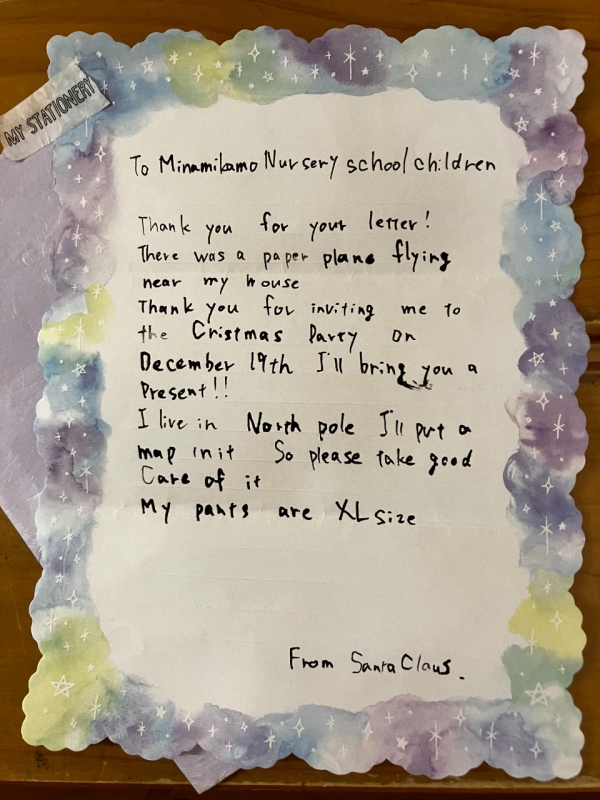 MY STATIONERY
To Minamikamo Nursery school children
Thank you for your letter!
There was a paper plane flying
near my house
Thank you for inviting me to
the Cristmas Party on
December 19th I'll bring you a
Present!!
I live in North pole I'll put a
map in it So please take good
Care of it
My pants are XL size
From Santa Claus.